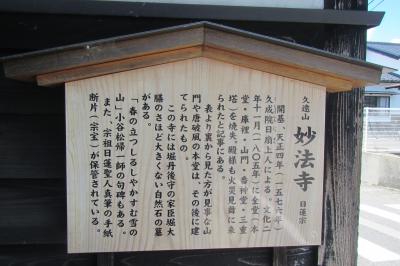 久遠山
妙法寺
日蓮宗
開基、天正四年(一五七六年)
久成院日扇上人による。文化二
年十一月(一八〇五年)に全堂(本
堂・庫裡・山門・番神堂・三重
塔)を焼失、殿様も火災見舞に来
られたと記事にある。
表より裏から見た方が見事な山
門や唐破風の本堂は、その後に建
てられたもの。
この寺には堀丹後守の家臣堀大
膳のさほど大きくない自然石の墓
がある。
「春の立つしるしやかすむ雪の
山」小谷松帰一師の句碑もある。
また、宗祖日蓮聖人真筆の手紙
断片(宗宝)が保管されている。